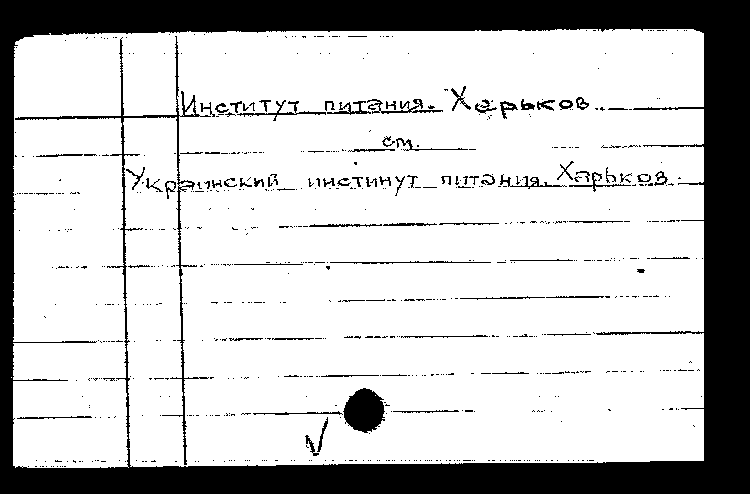 Институт питания. Харьков.
см.
Украинский инстинут питания. Харьков.